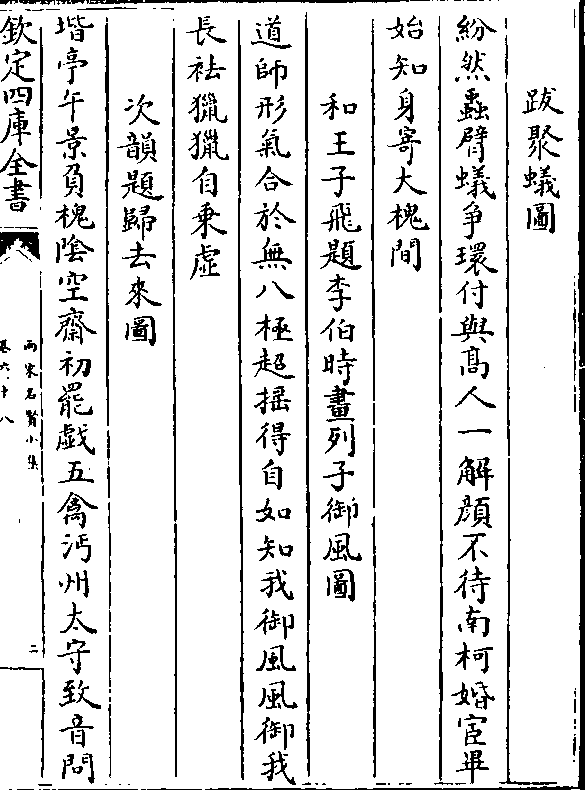 跋聚蟻圖
紛然蝨臂蟻爭環付與髙人一解顔不待南柯婚宦畢
始知身寄大槐間
和王子飛題李伯時畫列子御風圖
道師形氣合於無八極超揺得自如知我御風風御我
長袪獵獵自乗虚
次韻題歸去來圖
堦亭午景負槐隂空齋初罷戯五禽沔州太守致音問
欽定四庫全書
兩宋名賢小集
卷六十八
二